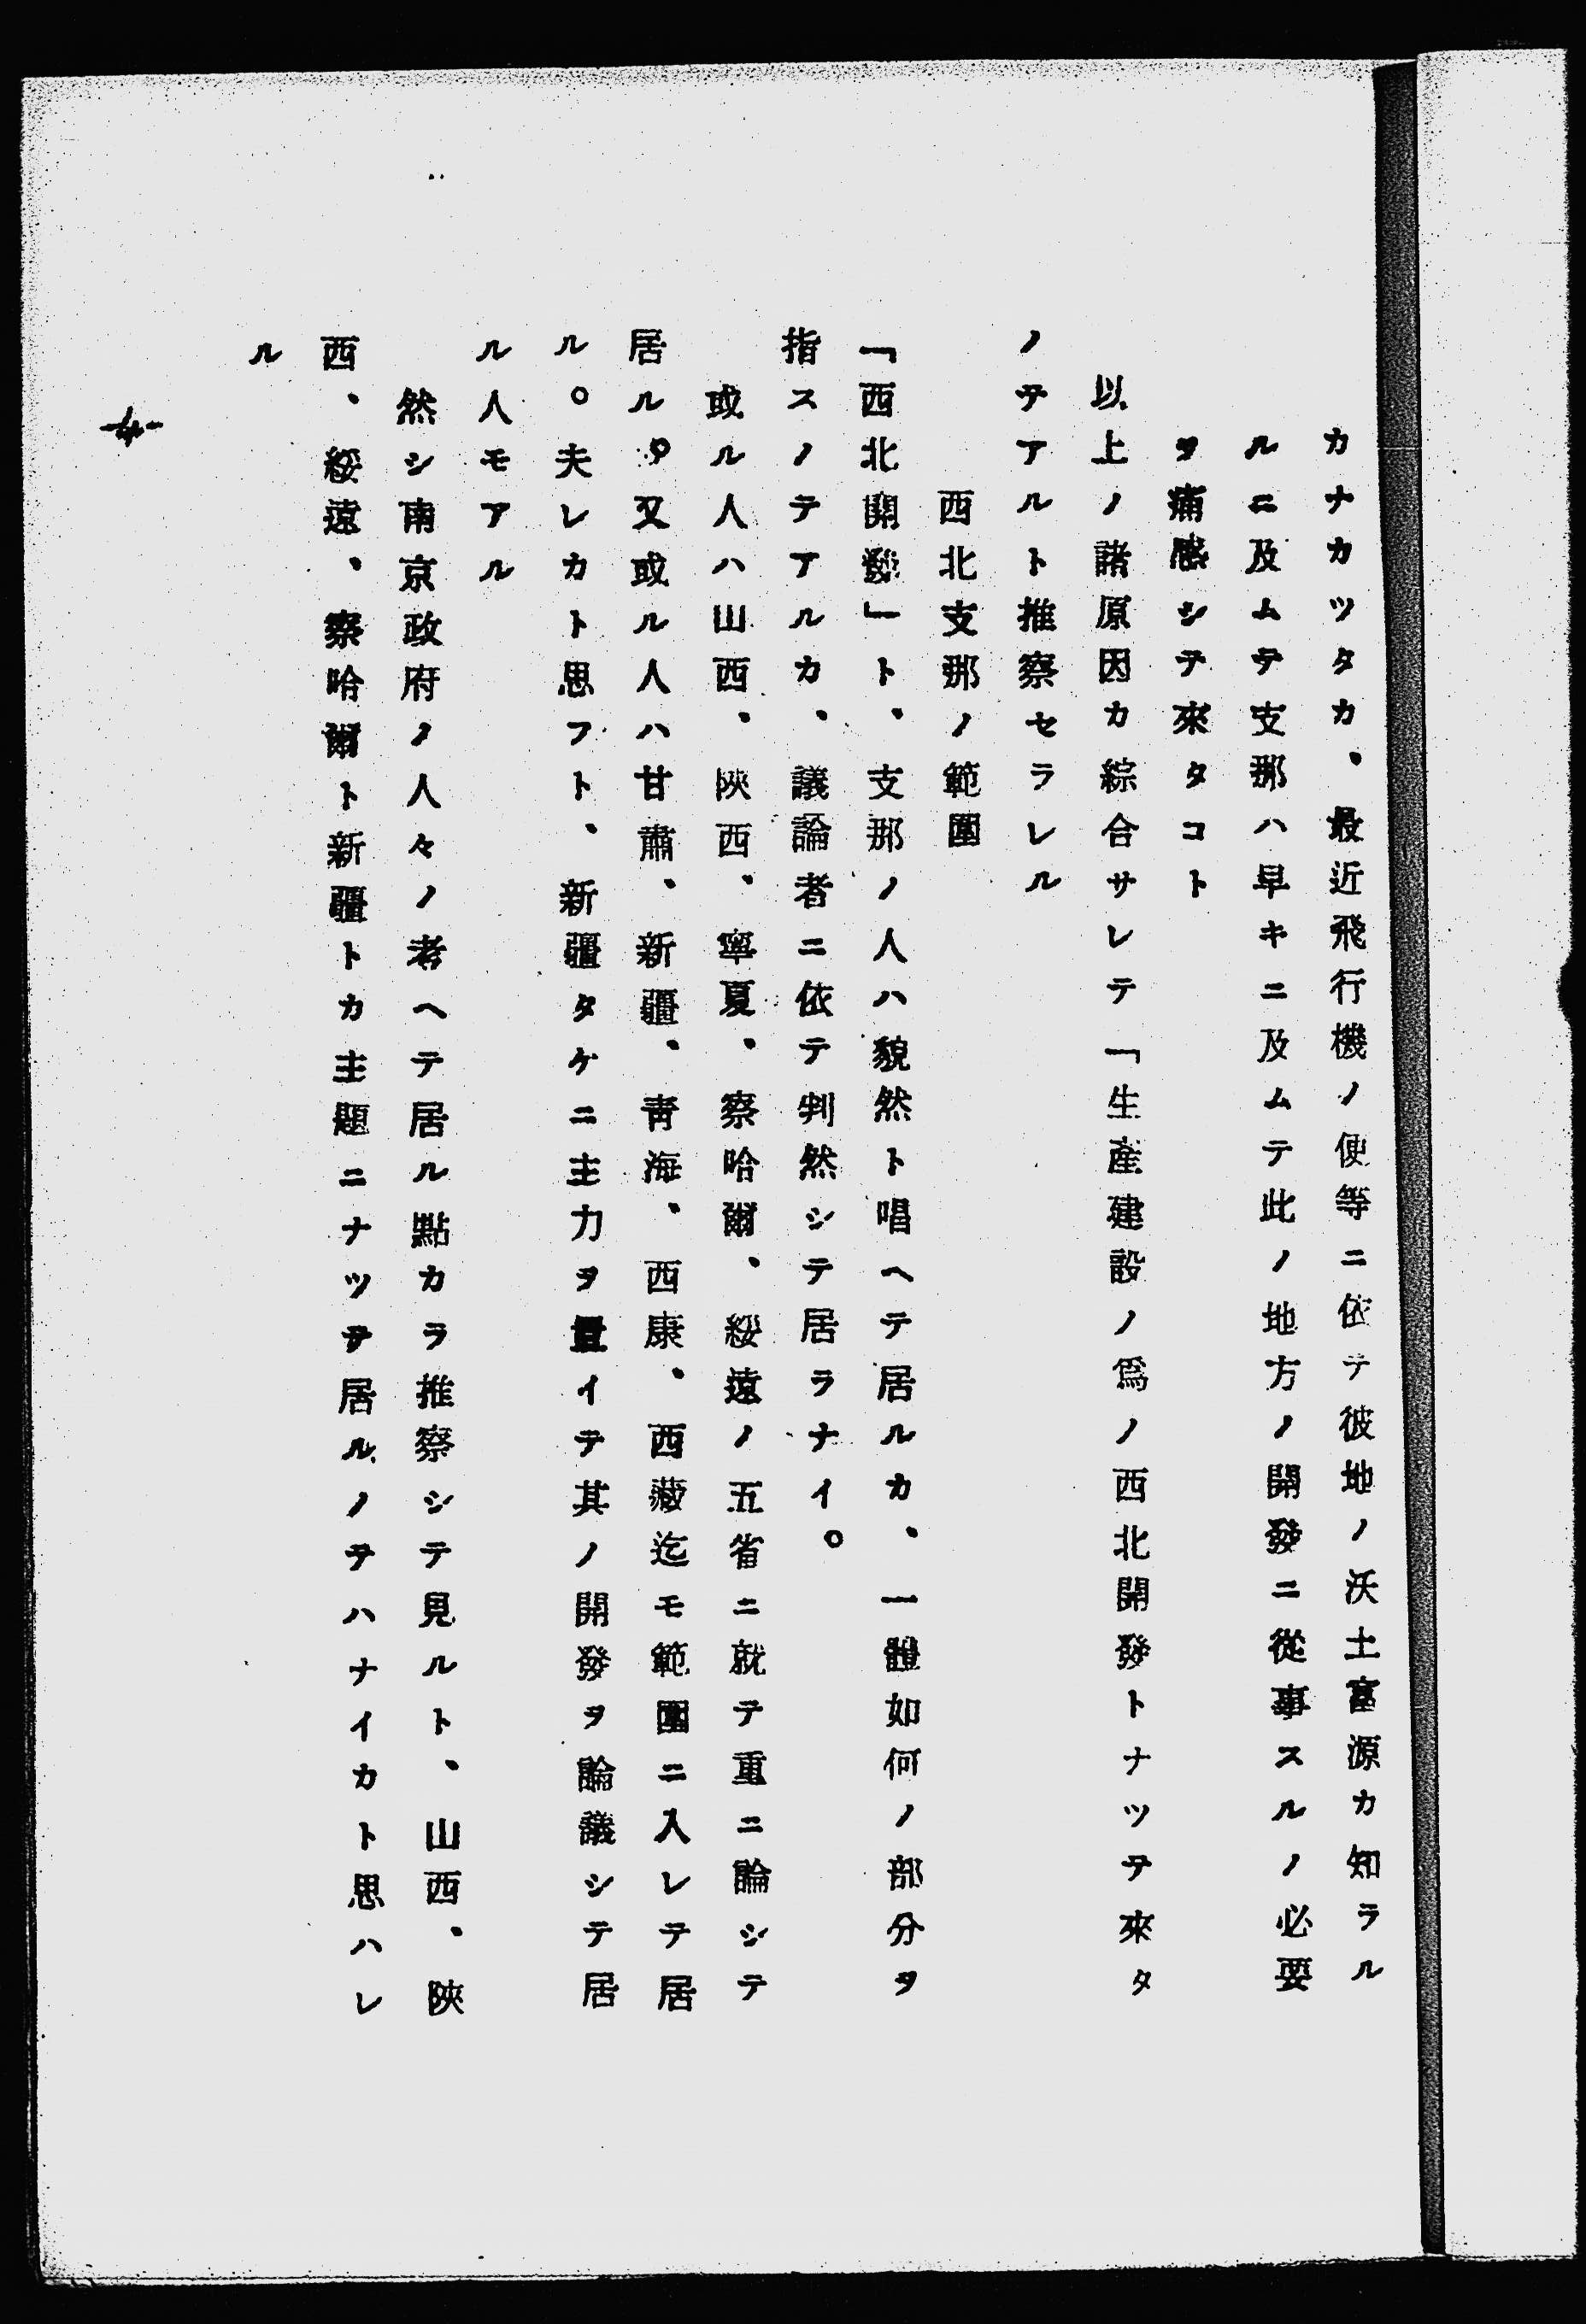 カナカツタカ、最近飛行機ノ便等ニ依テ彼地ノ沃土富源カ知ラル
ルニ及ムテ支那ハ早キニ及ムテ此ノ地方ノ開發ニ從事スルノ必要
ヲ痛感シテ來タコト
以上ノ諸原因カ綜合サレテ「生產建設ノ爲ノ西北開發トナツテ來タ
ノテアルト推察セラレル
西北支那ノ範圍
「西北開發」ト、支那ノ人ハ貌然ト唱ヘテ居ルカ、一體如何ノ部分ヲ
指スノテアルカ、議論者ニ依テ判然シテ居ラナイ。
或ル人ハ山西、陝西、寧夏、察哈爾、綏遠ノ五省ニ就テ重ニ論シテ
居ル。又或ル人ハ甘肅、新疆、靑海、西康、西藏迄モ範圍ニ入レテ居
ル。夫レカト思フト、新疆タケニ主力ヲ置イテ其ノ開發ヲ論議シテ居
ル人モアル
然シ南京政府ノ人々ノ考ヘテ居ル點カラ推察シテ見ルト、山西、陝
西、綏遠、察哈爾ト新疆トカ主題ニナツテ居ルノテハナイカト思ハレ
ル